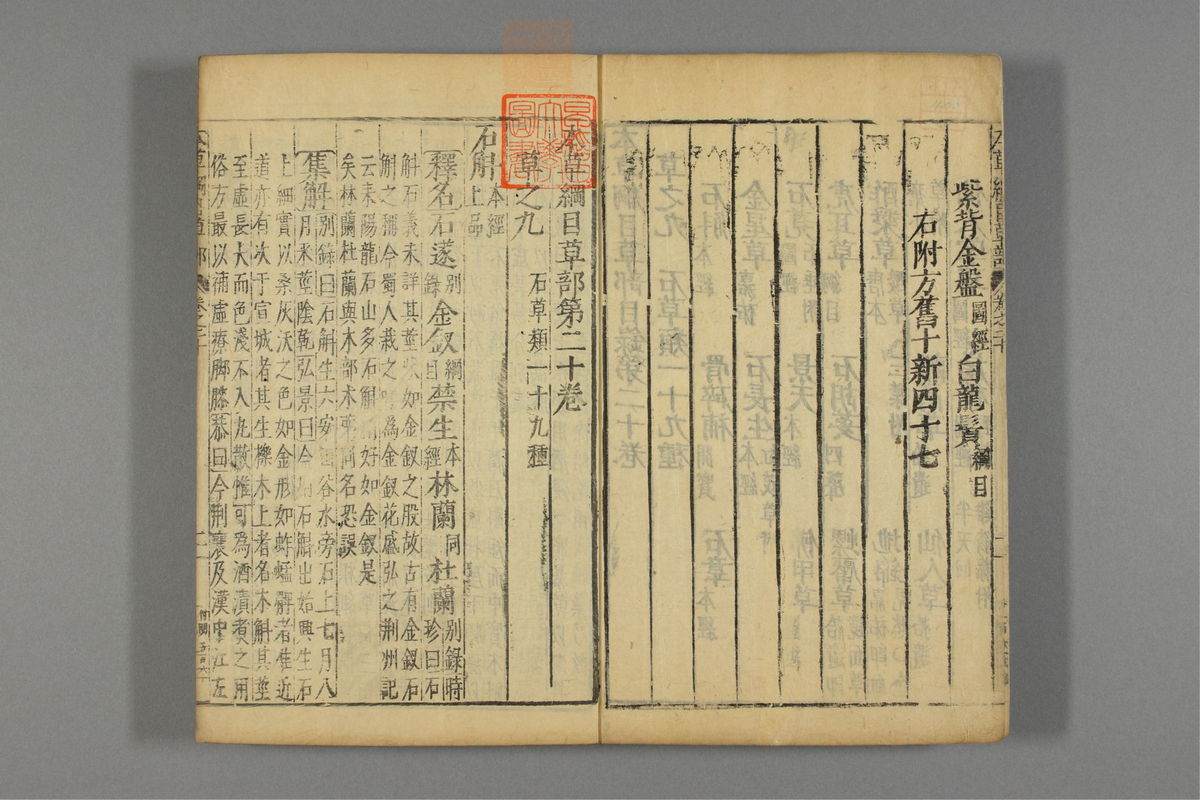 紫背金盤圖經 白龍鬚綱目
右附方舊十新四十七
本草綱目草部第二十卷
草之九 石草類一十九種
石斛本經上品
釋名石遂別錄金釵綱目禁生本經林蘭同杜蘭別錄時珍曰石
斛石義未詳其莖狀如金釵之股故古有金釵石
斛之稱今蜀人栽之呼為金釵花盛弘之荊州記
云耒陽龍石山多石斛精好如金釵是
矣林蘭杜蘭與木部木蘭同名恐誤
集解別錄曰石斛生六安山谷水旁石上七月八
月采莖陰乾弘景曰今用石斛出始興生石
上細實以桑灰沃之色如金形如蚱蜢髀者佳近
道亦有次于宣城者其生櫟木上者名木斛其莖
至虛長大而色淺不入丸散惟可為酒漬煮之用
俗方最以補虛療脚膝恭曰今荊襄及漢中江左